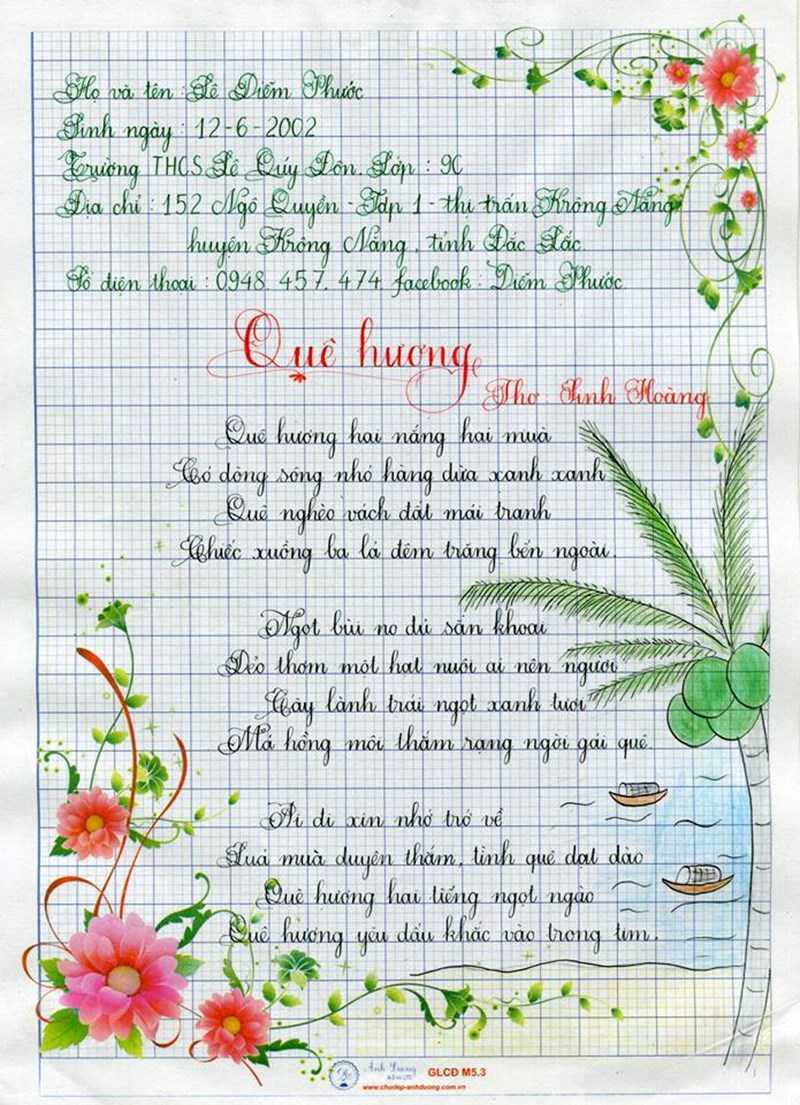 Họ và tên : Lê Diễm Phước
Sinh ngày : 12-6-2002
Trường THCS Lê Qúy Đôn. Lớp : 9C
Địa chỉ : 152 Ngô Quyền - Tdp 1 - thị trấn Krông Năng
huyện Krông Năng, tỉnh Đắc Lắc
Số điện thoại : 0948. 457. 474. facebook : Diễm Phước
Quê hương
Thơ : Sinh Hoàng
Quê hương hai nắng hai mùa
Có dòng sông nhỏ hàng dừa xanh xanh
Quê nghèo vách đất mái tranh
Chiếc xuồng ba lá đêm trăng bến ngoài.
Ngọt bùi no đủ sắn khoai
Dẻo thơm một hạt nuôi ai nên người
Cây lành trái ngọt xanh tươi
Má hồng môi thắm rạng ngời gái quê.
Ai đi xin nhớ trở về
Lúa mùa duyên thắm, tình quê dạt dào
Quê hương hai tiếng ngọt ngào
Quê hương yêu dấu khắc vào trong tim.
Ánh Dương
GLCĐ M5.3
www.chudep-anhduong.com.vn